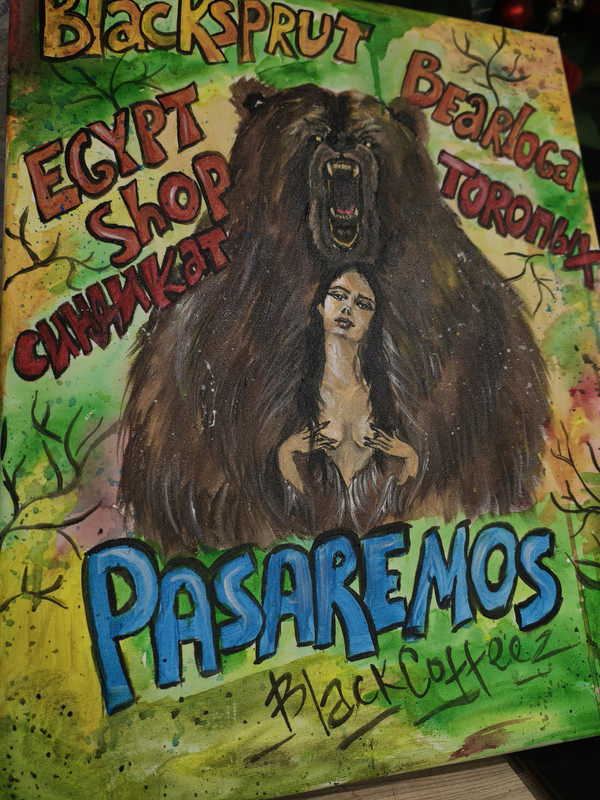 BlackSPRUT
EGYPT
Shop
синдикат
Bearloga
ТОROПЫХ
PASAREMOS
BlackCoffeez